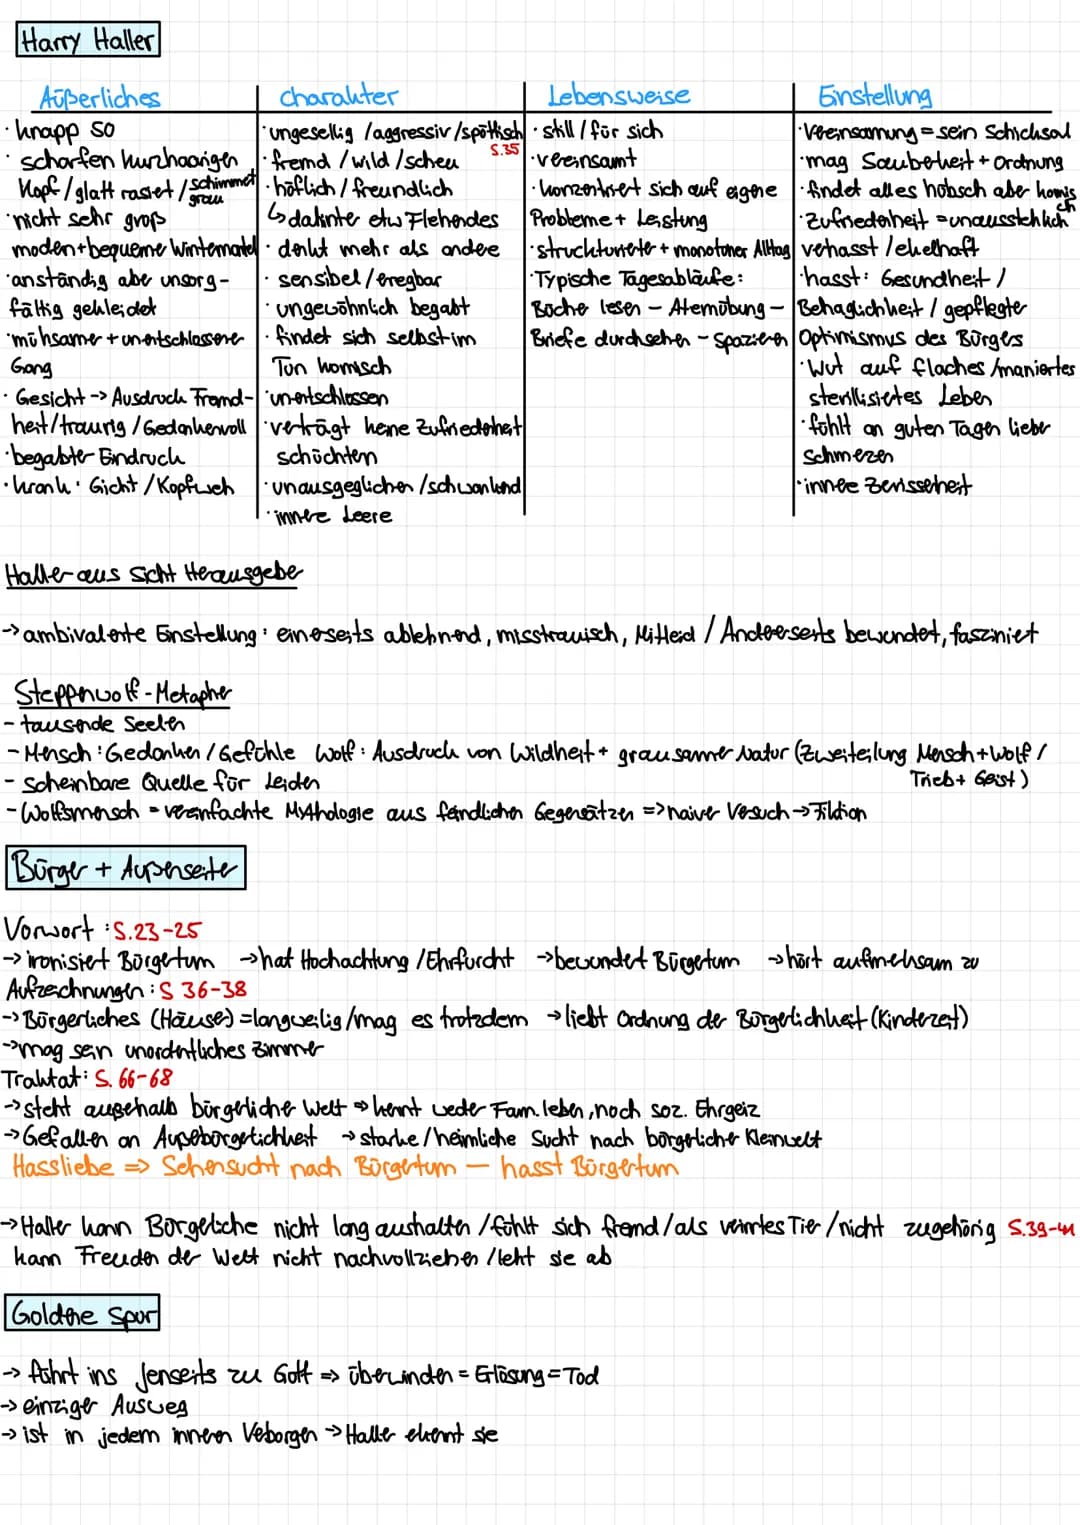 Harry Haller
Äußerliches
· knapp 50
· scharfen kurzhaarigen
Kopf / glatt rasiert / schimmert grau
· nicht sehr groß
modern + bequeme Wintermantel
· anständig aber unsorg-
fältig gekleidet
· mühsamer + unentschlossener
Gang
· Gesicht -> Ausdruck Fremd-
heit / traurig / Gedankenvoll
· begabter Eindruck
· krank: Gicht / Kopfweh
Charakter
· ungesellig / aggressiv / spöttisch
S.35
· fremd / wild / scheu
· höflich / freundlich
↳ dahinter etw Flehendes
· denkt mehr als andere
· sensibel / erregbar
· ungewöhnlich begabt
· findet sich selbst im
Tun komisch
· unentschlossen
· verträgt keine Zufriedenheit
schüchtern
· unausgeglichen / schwankend
· innere Leere
Lebensweise
· still / für sich
· vereinsamt
· konzentriert sich auf eigene
Probleme + Leistung
· strukturierter + monotoner Alltag
· Typische Tagesabläufe:
Bücher lesen – Atemübung –
Briefe durchsehen – Spazieren
Einstellung
· Vereinsamung = sein Schicksal
· mag Sauberkeit + Ordnung
· findet alles hübsch aber komisch
· Zufriedenheit = unausstehlich
verhasst / ekelhaft
· hasst: Gesundheit /
Behaglichkeit / gepflegter
Optimismus des Bürgers
· Wut auf flaches / maniertes
sterilisiertes Leben
· fühlt an guten Tagen lieber
Schmerzen
· innere Zerrissenheit
Haller aus Sicht Herausgeber
-> ambivalente Einstellung: einerseits ablehnend, misstrauisch, Mitleid / Andererseits bewundert, fasziniert
Steppenwolf - Metapher
- tausende Seelen
- Mensch: Gedanken / Gefühle Wolf: Ausdruck von Wildheit + grausamer Natur (Zweiteilung Mensch + Wolf /
Trieb + Geist)
- Scheinbare Quelle für Leiden
- Wolfsmensch = vereinfachte Mythologie aus feindlichen Gegensätzen => naiver Versuch -> Fiktion
Bürger + Außenseiter
Vorwort: S.23-25
-> ironisiert Bürgertum -> hat Hochachtung / Ehrfurcht -> bewundert Bürgertum -> hört aufmerksam zu
Aufzeichnungen: S 36-38
-> Bürgerliches (Häuser) = langweilig / mag es trotzdem -> liebt Ordnung der Bürgerlichkeit (Kinderzeit)
-> mag sein unordentliches Zimmer
Traktat: S. 66-68
-> steht außerhalb bürgerlicher Welt => kennt weder Fam.leben, noch soz. Ehrgeiz
-> Gefallen an Außebürgerlichkeit -> starke / heimliche Sucht nach bürgerlicher Kleinwelt
Hassliebe => Sehensucht nach Bürgertum — hasst Bürgertum
-> Haller kann Bürgerliche nicht lang aushalten / fühlt sich fremd / als verirrtes Tier / nicht zugehörig S.39-41
kann Freuden der Welt nicht nachvollziehen / lehnt sie ab
Goldene Spur
-> führt ins Jenseits zu Gott => überwinden = Erlösung = Tod
-> einziger Ausweg
-> ist in jedem innern Verborgen -> Haller erkennt sie